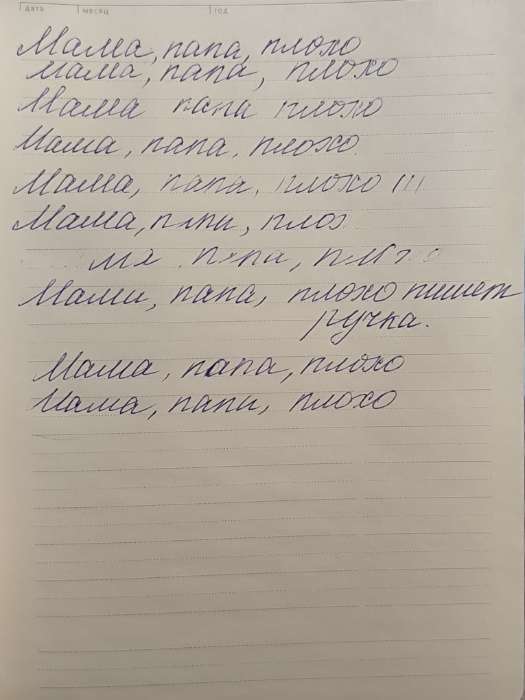 дата месяц год
Мама, папа, плохо
Мама, папа, плохо
Мама папа плохо
Мама, папа, плохо
Мама, папа, плохо !!!
Мама, папа, плох
ма папа,
Мами, папа, плохо пишет
ручка.
Мама, папа, плохо
Мама, папи, плохо